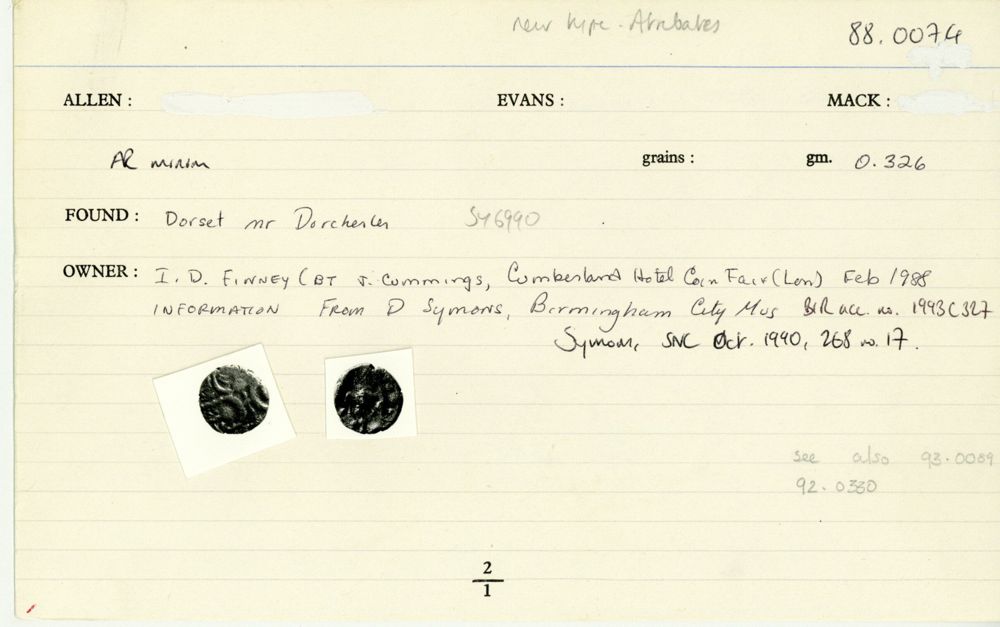 new type - Atrebates 88.0074
ALLEN : EVANS : MACK :
AR minim grains : gm. 0.326
FOUND : Dorset nr Dorchester SY6990
OWNER : I. D. FINNEY (BT J. Cummings, Cumberland Hotel Coin Fair (Lon) Feb 1988
INFORMATION FROM D Symons, Birmingham City Mus BIR acc. no. 1993C327
Symons, SNC Oct. 1990, 268 no. 17.
see also 93.0089
92.0330
2
1